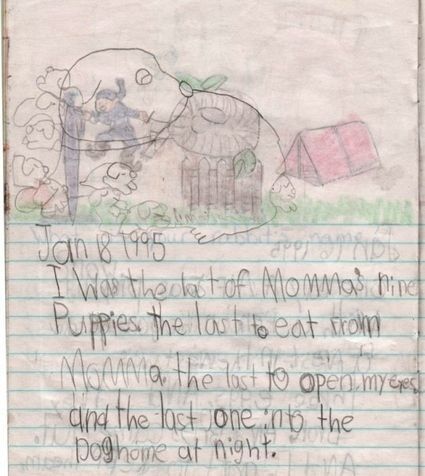 Jan 18 1995
I Was the last of Momma's nine
Puppies. the last to eat from
Momma. the last to open my eyes
and the last one into the
Doghome at night.